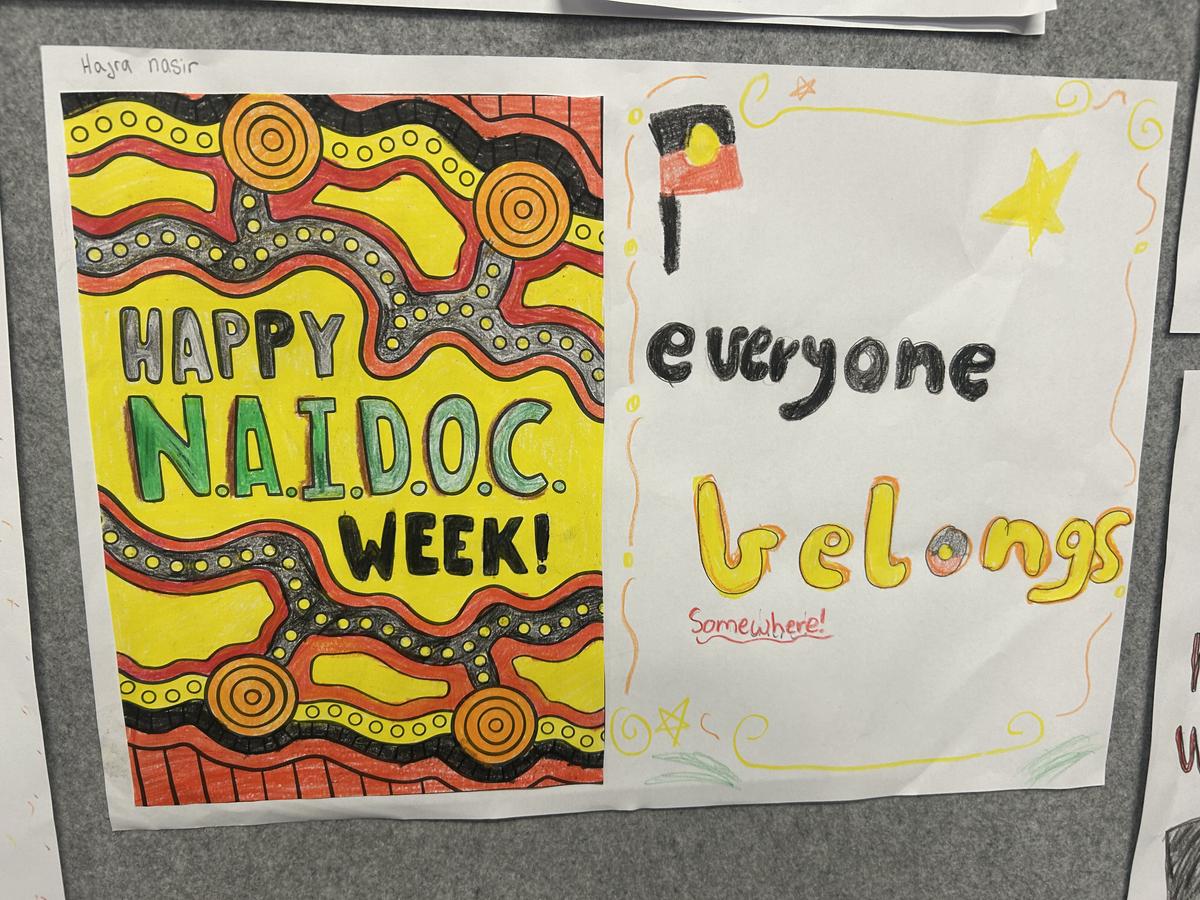 Hajra nasir
HAPPY
N.A.I.D.O.C.
WEEK!
everyone
belongs
Somewhere!